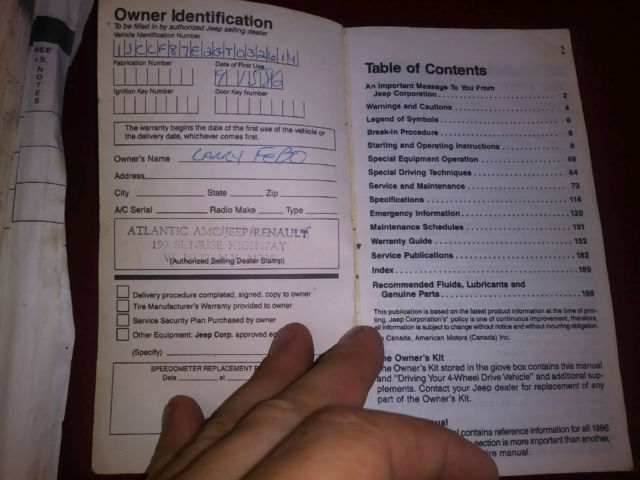 SEE
I.S.
NOTES
Owner Identification
To be filled in by authorized Jeep selling dealer
Vehicle Identification Number
Fabrication Number
Date of First Use
9 15 86
Ignition Key Number
Door Key Number
The warranty begins the date of the first use of the vehicle or
the delivery date, whichever comes first.
Owner's Name LARRY FEBO
Address
City State Zip
A/C Serial Radio Make Type
ATLANTIC AMC/JEEP/RENAULT
199 SUNRISE HIGHWAY
(Authorized Selling Dealer Stamp)
Delivery procedure completed, signed, copy to owner
Tire Manufacturer's Warranty provided to owner
Service Security Plan Purchased by owner
Other Equipment: Jeep Corp. approved
(Specify)
SPEEDOMETER REPLACEMENT
Date at
2
Table of Contents
An Important Message To You From
Jeep Corporation 2
Warnings and Cautions 4
Legend of Symbols 6
Break-In Procedure 8
Starting and Operating Instructions 8
Special Equipment Operation 49
Special Driving Techniques 64
Service and Maintenance 73
Specifications 114
Emergency Information 120
Maintenance Schedules 131
Warranty Guide 152
Service Publications 182
Index 189
Recommended Fluids, Lubricants and
Genuine Parts 195
This publication is based on the latest product information at the time of prin-
ting. Jeep Corporation's policy is one of continuous improvement, therefore,
all information is subject to change without notice and without incurring obligation.
In Canada, American Motors (Canada) Inc.
The Owner's Kit
The Owner's Kit stored in the glove box contains this manual
and "Driving Your 4-Wheel Drive Vehicle" and additional sup-
plements. Contact your Jeep dealer for replacement of any
part of the Owner's Kit.
contains reference information for all 1986
section is more important than another,
manual.